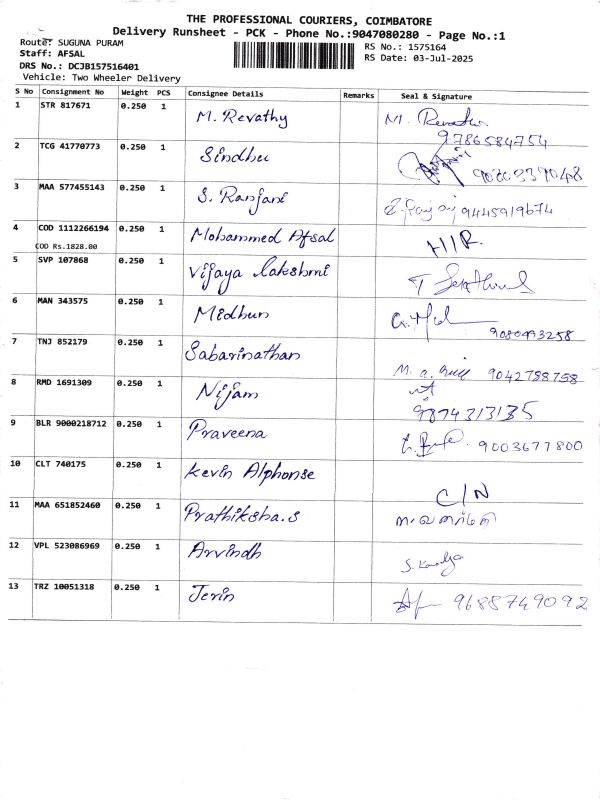 THE PROFESSIONAL COURIERS, COIMBATORE
Delivery Runsheet - PCK - Phone No.:9047080280 - Page No.:1
Route: SUGUNA PURAM RS No.: 1575164
Staff: AFSAL RS Date: 03-Jul-2025
DRS No.: DCJB157516401
Vehicle: Two Wheeler Delivery
S No Consignment No Weight PCS Consignee Details Remarks Seal & Signature
1 STR 817671 0.250 1 M. Revathy M. Revathy
9786584754
2 TCG 41770773 0.250 1 Sindhu
3 MAA 577455143 0.250 1 S. Ranjani 9445919674
4 COD 1112266194 0.250 1 Mohammed Afsal H/R
COD Rs.1828.00
5 SVP 107868 0.250 1 Vijaya lakshmi
6 MAN 343575 0.250 1 Midhun
9080493258
7 TNJ 852179 0.250 1 Sabarinathan
9042788758
8 RMD 1691309 0.250 1 Nijam
9874313135
9 BLR 9000218712 0.250 1 Praveena 9003677800
10 CLT 740175 0.250 1 Kevin Alphonse
C/N
11 MAA 651852460 0.250 1 Prathiksha.S
12 VPL 523086969 0.250 1 Arvindh
13 TRZ 10051318 0.250 1 Jerin 9688749092